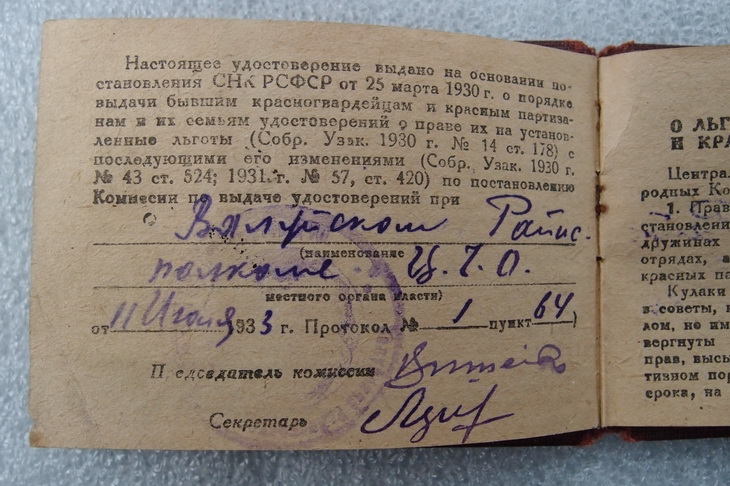 Настоящее удостоверение выдано на основании по-
становления СНК РСФСР от 25 марта 1930 г. о порядке
выдачи бывшим красногвардейцам и красным партиза-
нам и их семьям удостоверений о праве их на установ-
ленные льготы (Собр. Узак. 1930 г. № 14 ст. 178) с
последующими его изменениями (Собр. Узак. 1930 г.
№ 43 ст. 524; 1931 г. № 57, ст. 420) по постановлению
Комиссии по выдаче удостоверений при
Валуйском Райис-
(наименование
полкоме Ц.Ч.О.
местного органа власти)
от 11 Июля 1933 г. Протокол № 1 пункт 64)
П едседатель комиссии
Секретарь
О ЛЬГ
И КРА
Централ
родных Ко
1. Прав
становлени
дружинах
отрядах, а
красных па
Кулаки
в советы, н
лом, не им
вергнуты
прав, высы
тизном пор
срока, на